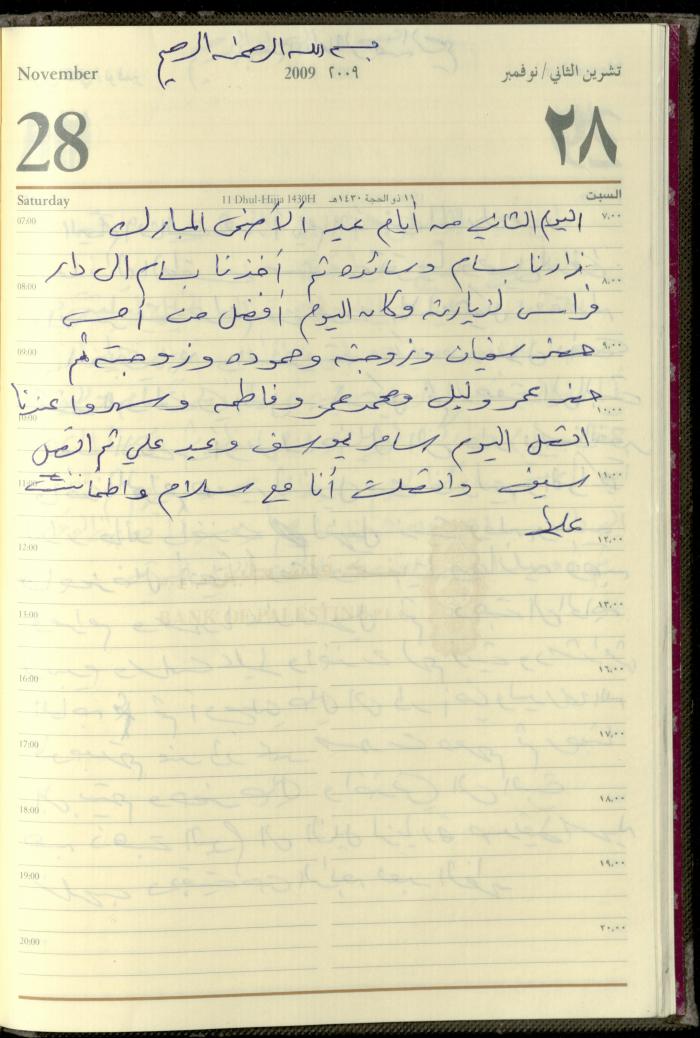 بسم الله الرحمن الرحيم
November 2009 ٢٠٠٩ تشرين الثاني / نوفمبر
28 ٢٨
Saturday 11 Dhul-Hijja 1430H ١١ ذو الحجة ١٤٣٠هـ السبت
07:00 ٧،٠٠
اليوم الثاني من أيام عيد الأضحى المبارك
زارنا بسام وسائده ثم أخذنا بسام الى دار
08:00 ٨،٠٠
فراس لزيارته وكان اليوم أفضل من أمس
09:00 ٩،٠٠
حضر سفيان وزوجته وحموده وزوجته ثم
حضر عمر وليل ومحمد عمر وفاطمه وسهروا عندنا
10:00 ١٠،٠٠
اتصل اليوم سامر يوسف وعيد علي ثم اتصل
11:00 ١١،٠٠
سيف واتصلت أنا مع سلام واطمأننت
عليها
12:00 ١٢،٠٠
13:00 ١٣،٠٠
BANK OF PALESTINE
16:00 ١٦،٠٠
17:00 ١٧،٠٠
18:00 ١٨،٠٠
19:00 ١٩،٠٠
20:00 ٢٠،٠٠